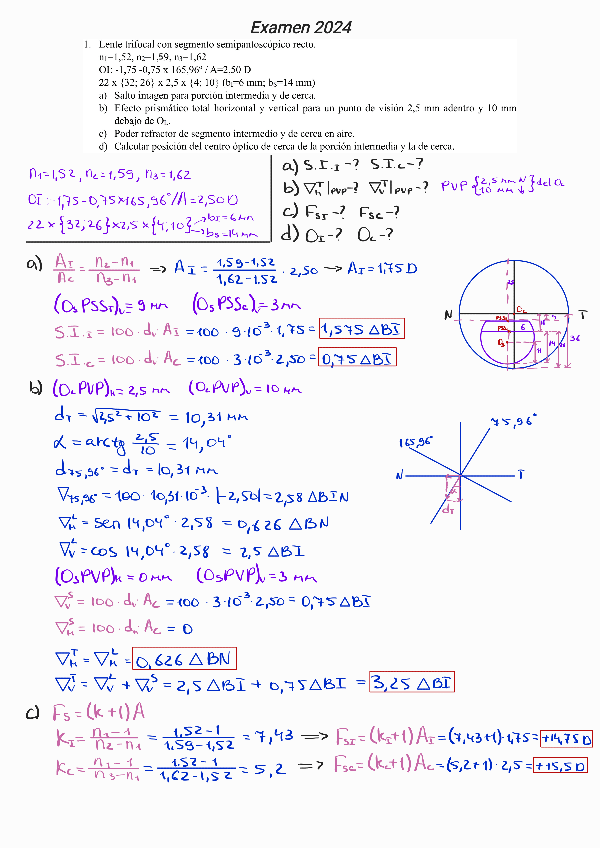 Examen 2024
1. Lente trifocal con segmento semipantoscópico recto.
n₁=1,52, n₂=1,59, n₃=1,62
OI: -1,75 -0,75 x 165,96º / A=2,50 D
22 x {32; 26} x 2,5 x {4; 10} (bᵢ=6 mm; bₛ=14 mm)
a) Salto imagen para porción intermedia y de cerca.
b) Efecto prismático total horizontal y vertical para un punto de visión 2,5 mm adentro y 10 mm
debajo de O_L.
c) Poder refractor de segmento intermedio y de cerca en aire.
d) Calcular posición del centro óptico de cerca de la porción intermedia y la de cerca.
n₁=1,52, n₂=1,59, n₃=1,62
OI: -1,75-0,75×165,96°/A=2,50 D
22×{32,26}×2,5×{4,10} → b_I=6 mm
→ b_S=14 mm
a) S.I._I-? S.I._C-?
b) ∇_H^T|PVP-? ∇_V^T|PVP-? PVP {2,5 mm N
10 mm ↓} del O_L
c) F_SI-? F_SC-?
d) O_I-? O_C-?
a) A_I/A_C = (n₂-n₁)/(n₃-n₁) => A_I = (1,59-1,52)/(1,62-1,52) · 2,50 → A_I=1,75 D
(O_S PSS_I)_V=9 mm (O_S PSS_C)_V=3 mm
S.I._I = 100·d_V·A_I = 100·9·10⁻³·1,75 = 1,575 △BI
S.I._C = 100·d_V·A_C = 100·3·10⁻³·2,50 = 0,75 △BI
N O_L T
b) (O_L PVP)_H=2,5 mm (O_L PVP)_V=10 mm
d_T = √(2,5²+10²) = 10,31 mm
α = arctg 2,5/10 = 14,04°
d_75,96° = d_T = 10,31 mm
∇_75,96° = 100·10,31·10⁻³·|-2,50| = 2,58 △BIN
∇_H^L = sen 14,04°·2,58 = 0,626 △BN
∇_V^L = cos 14,04°·2,58 = 2,5 △BI
75,96°
165,96°
N T
d_T
(O_S PVP)_H=0 mm (O_S PVP)_V=3 mm
∇_V^S = 100·d_V·A_C = 100·3·10⁻³·2,50 = 0,75 △BI
∇_H^S = 100·d_H·A_C = 0
∇_H^T = ∇_H^L = 0,626 △BN
∇_V^T = ∇_V^L + ∇_V^S = 2,5 △BI + 0,75 △BI = 3,25 △BI
c) F_S = (k+1)A
k_I = (n₁-1)/(n₂-n₁) = (1.52-1)/(1.59-1,52) = 7,43 => F_SI = (k_I+1)A_I = (7,43+1)·1,75 = +14,75 D
k_C = (n₁-1)/(n₃-n₁) = (1.52-1)/(1,62-1,52) = 5,2 => F_SC = (k_C+1)A_C = (5,2+1)·2,5 = +15,5 D